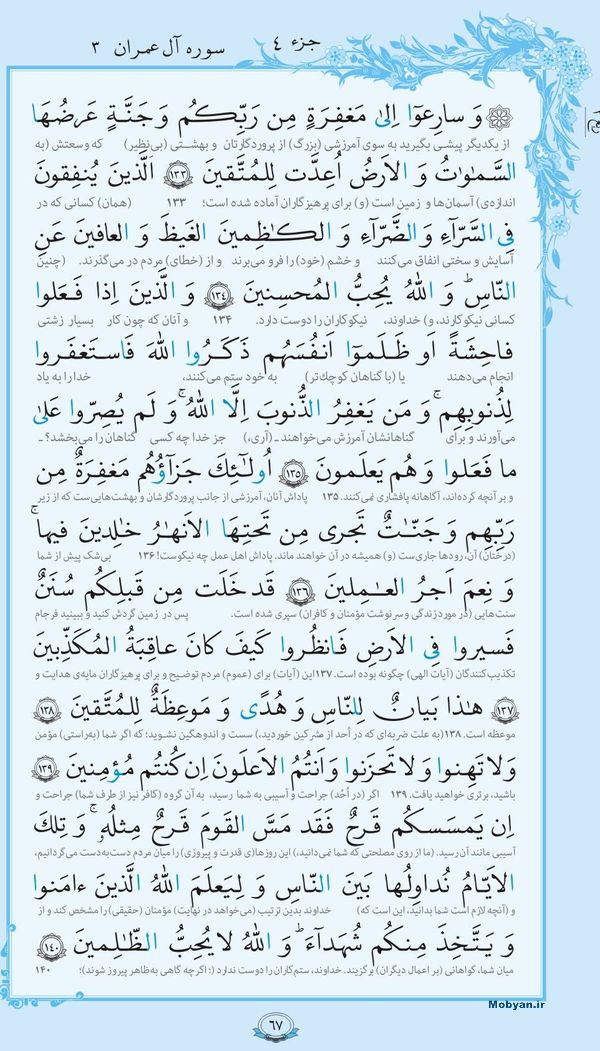 جزء ٤
سوره آل عمران ٣
وَ سارِعوٓا اِلىٰ مَغفِرَةٍ مِن رَبِّكُم وَ جَنَّةٍ عَرضُهَا
از یکدیگر پیشی بگیرید به سوی آمرزشی (بزرگ) از پروردگارتان و بهشتی (بی‌نظیر) که وسعتش (به
السَّمٰوٰتُ وَ الاَرضُ اُعِدَّت لِلمُتَّقينَ ﴿١٣٣﴾ اَلَّذينَ يُنفِقونَ
اندازه‌ی) آسمان‌ها و زمین است (و) برای پرهیزگاران آماده شده است؛ ۱۳۳ (همان) کسانی که در
فِى السَّرَّآءِ وَ الضَّرَّآءِ وَ الكٰظِمينَ الغَيظَ وَ العافينَ عَنِ
آسایش و سختی انفاق می‌کنند و خشم (خود) را فرو می‌برند و از (خطای) مردم در می‌گذرند. (چنین
النّاسِ ۗ وَ اللّٰهُ يُحِبُّ المُحسِنينَ ﴿١٣٤﴾ وَ الَّذينَ اِذا فَعَلوا
کسانی نیکوکارند، و) خداوند، نیکوکاران را دوست دارد. ۱۳۴ و آنان که چون کار بسیار زشتی
فاحِشَةً اَو ظَلَموٓا اَنفُسَهُم ذَكَرُوا اللّٰهَ فَاستَغفَروا
انجام می‌دهند یا (با گناهان کوچک‌تر) به خود ستم می‌کنند، خدا را به یاد
لِذُنوبِهِم ۚ وَ مَن يَغفِرُ الذُّنوبَ اِلَّا اللّٰهُ ۚ وَ لَم يُصِرّوا عَلىٰ
می‌آورند و برای گناهانشان آمرزش می‌خواهند ـ (آری،) جز خدا چه کسی گناهان را می‌بخشد؟ ـ
ما فَعَلوا وَ هُم يَعلَمونَ ﴿١٣٥﴾ اُولٰٓئِكَ جَزآؤُهُم مَغفِرَةٌ مِن
و بر آنچه کرده‌اند، آگاهانه پافشاری نمی‌کنند. ۱۳۵ پاداش آنان، آمرزشی از جانب پروردگارشان و بهشت‌هایی‌ست که از زیر
رَبِّهِم وَ جَنّٰتٌ تَجرى مِن تَحتِهَا الاَنهٰرُ خٰلِدينَ فيها ۚ
(درختان) آن، رودها جاری‌ست (و) همیشه در آن خواهند ماند. پاداش اهل عمل چه نیکوست! ۱۳۶ بی‌شک پیش از شما
وَ نِعمَ اَجرُ العٰمِلينَ ﴿١٣٦﴾ قَد خَلَت مِن قَبلِكُم سُنَنٌ
سنت‌هایی (در مورد زندگی و سرنوشت مؤمنان و کافران) سپری شده است. پس در زمین گردش کنید و ببینید فرجام
فَسيروا فِى الاَرضِ فَانظُروا كَيفَ كانَ عاقِبَةُ المُكَذِّبينَ
تکذیب‌کنندگان (آیات الهی) چگونه بوده است. ۱۳۷ این (آیات) برای (عموم) مردم توضیح و برای پرهیزگاران مایه‌ی هدایت و
﴿١٣٧﴾ هٰذا بَيانٌ لِلنّاسِ وَ هُدًى وَ مَوعِظَةٌ لِلمُتَّقينَ ﴿١٣٨﴾
موعظه است. ۱۳۸ (به علت ضربه‌ای که در اُحد از مشرکین خوردید،) سست و اندوهگین نشوید؛ که اگر شما (به‌راستی) مؤمن
وَلا تَهِنوا وَ لا تَحزَنوا وَ اَنتُمُ الاَعلَونَ اِن كُنتُم مُؤمِنينَ ﴿١٣٩﴾
باشید، برتری خواهید یافت. ۱۳۹ اگر (در اُحُد) جراحت و آسیبی به شما رسید، به آن گروه (کافر نیز از طرف شما) جراحت و
اِن يَمسَسكُم قَرحٌ فَقَد مَسَّ القَومَ قَرحٌ مِثلُهُ ۚ وَ تِلكَ
آسیبی مانند آن رسید. (ما از روی مصلحتی که شما نمی‌دانید،) این روزها(ی قدرت و پیروزی) را میان مردم دست‌به‌دست می‌گردانیم،
الاَيّامُ نُداوِلُها بَينَ النّاسِ وَ لِيَعلَمَ اللّٰهُ الَّذينَ ءامَنوا
و (آنچه لازم است شما بدانید، این است که) خداوند بدین ترتیب (می‌خواهد در نهایت) مؤمنان (حقیقی) را مشخص کند و از
وَ يَتَّخِذَ مِنكُم شُهَدآءَ ۗ وَ اللّٰهُ لا يُحِبُّ الظّٰلِمينَ ﴿١٤٠﴾
میان شما، گواهانی (بر اعمال دیگران) برگزیند. خداوند، ستم‌کاران را دوست ندارد (؛ اگرچه گاهی به‌ظاهر پیروز شوند)؛ ۱۴۰
Mobyan.ir
٦٧